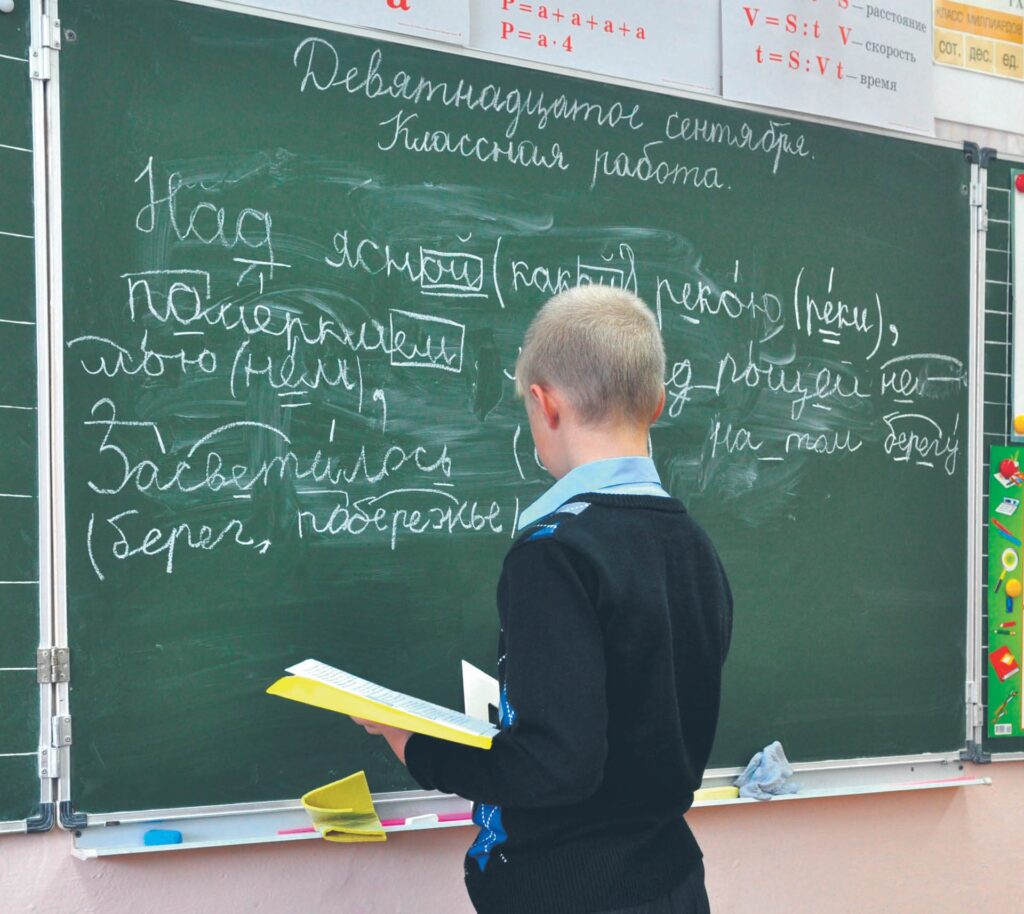 а
P = a + a + a + a
P = a · 4
S — расстояние
V = S : t V — скорость
t = S : V t — время
КЛАСС МИЛЛИАРДОВ
сот. дес. ед.
Девятнадцатое сентября.
Классная работа.
Над ясной (какой?) рекою (реки),
померкшем рощей не-
мою (нем),
Засветилось ( на том берегу
(берег, побережье)